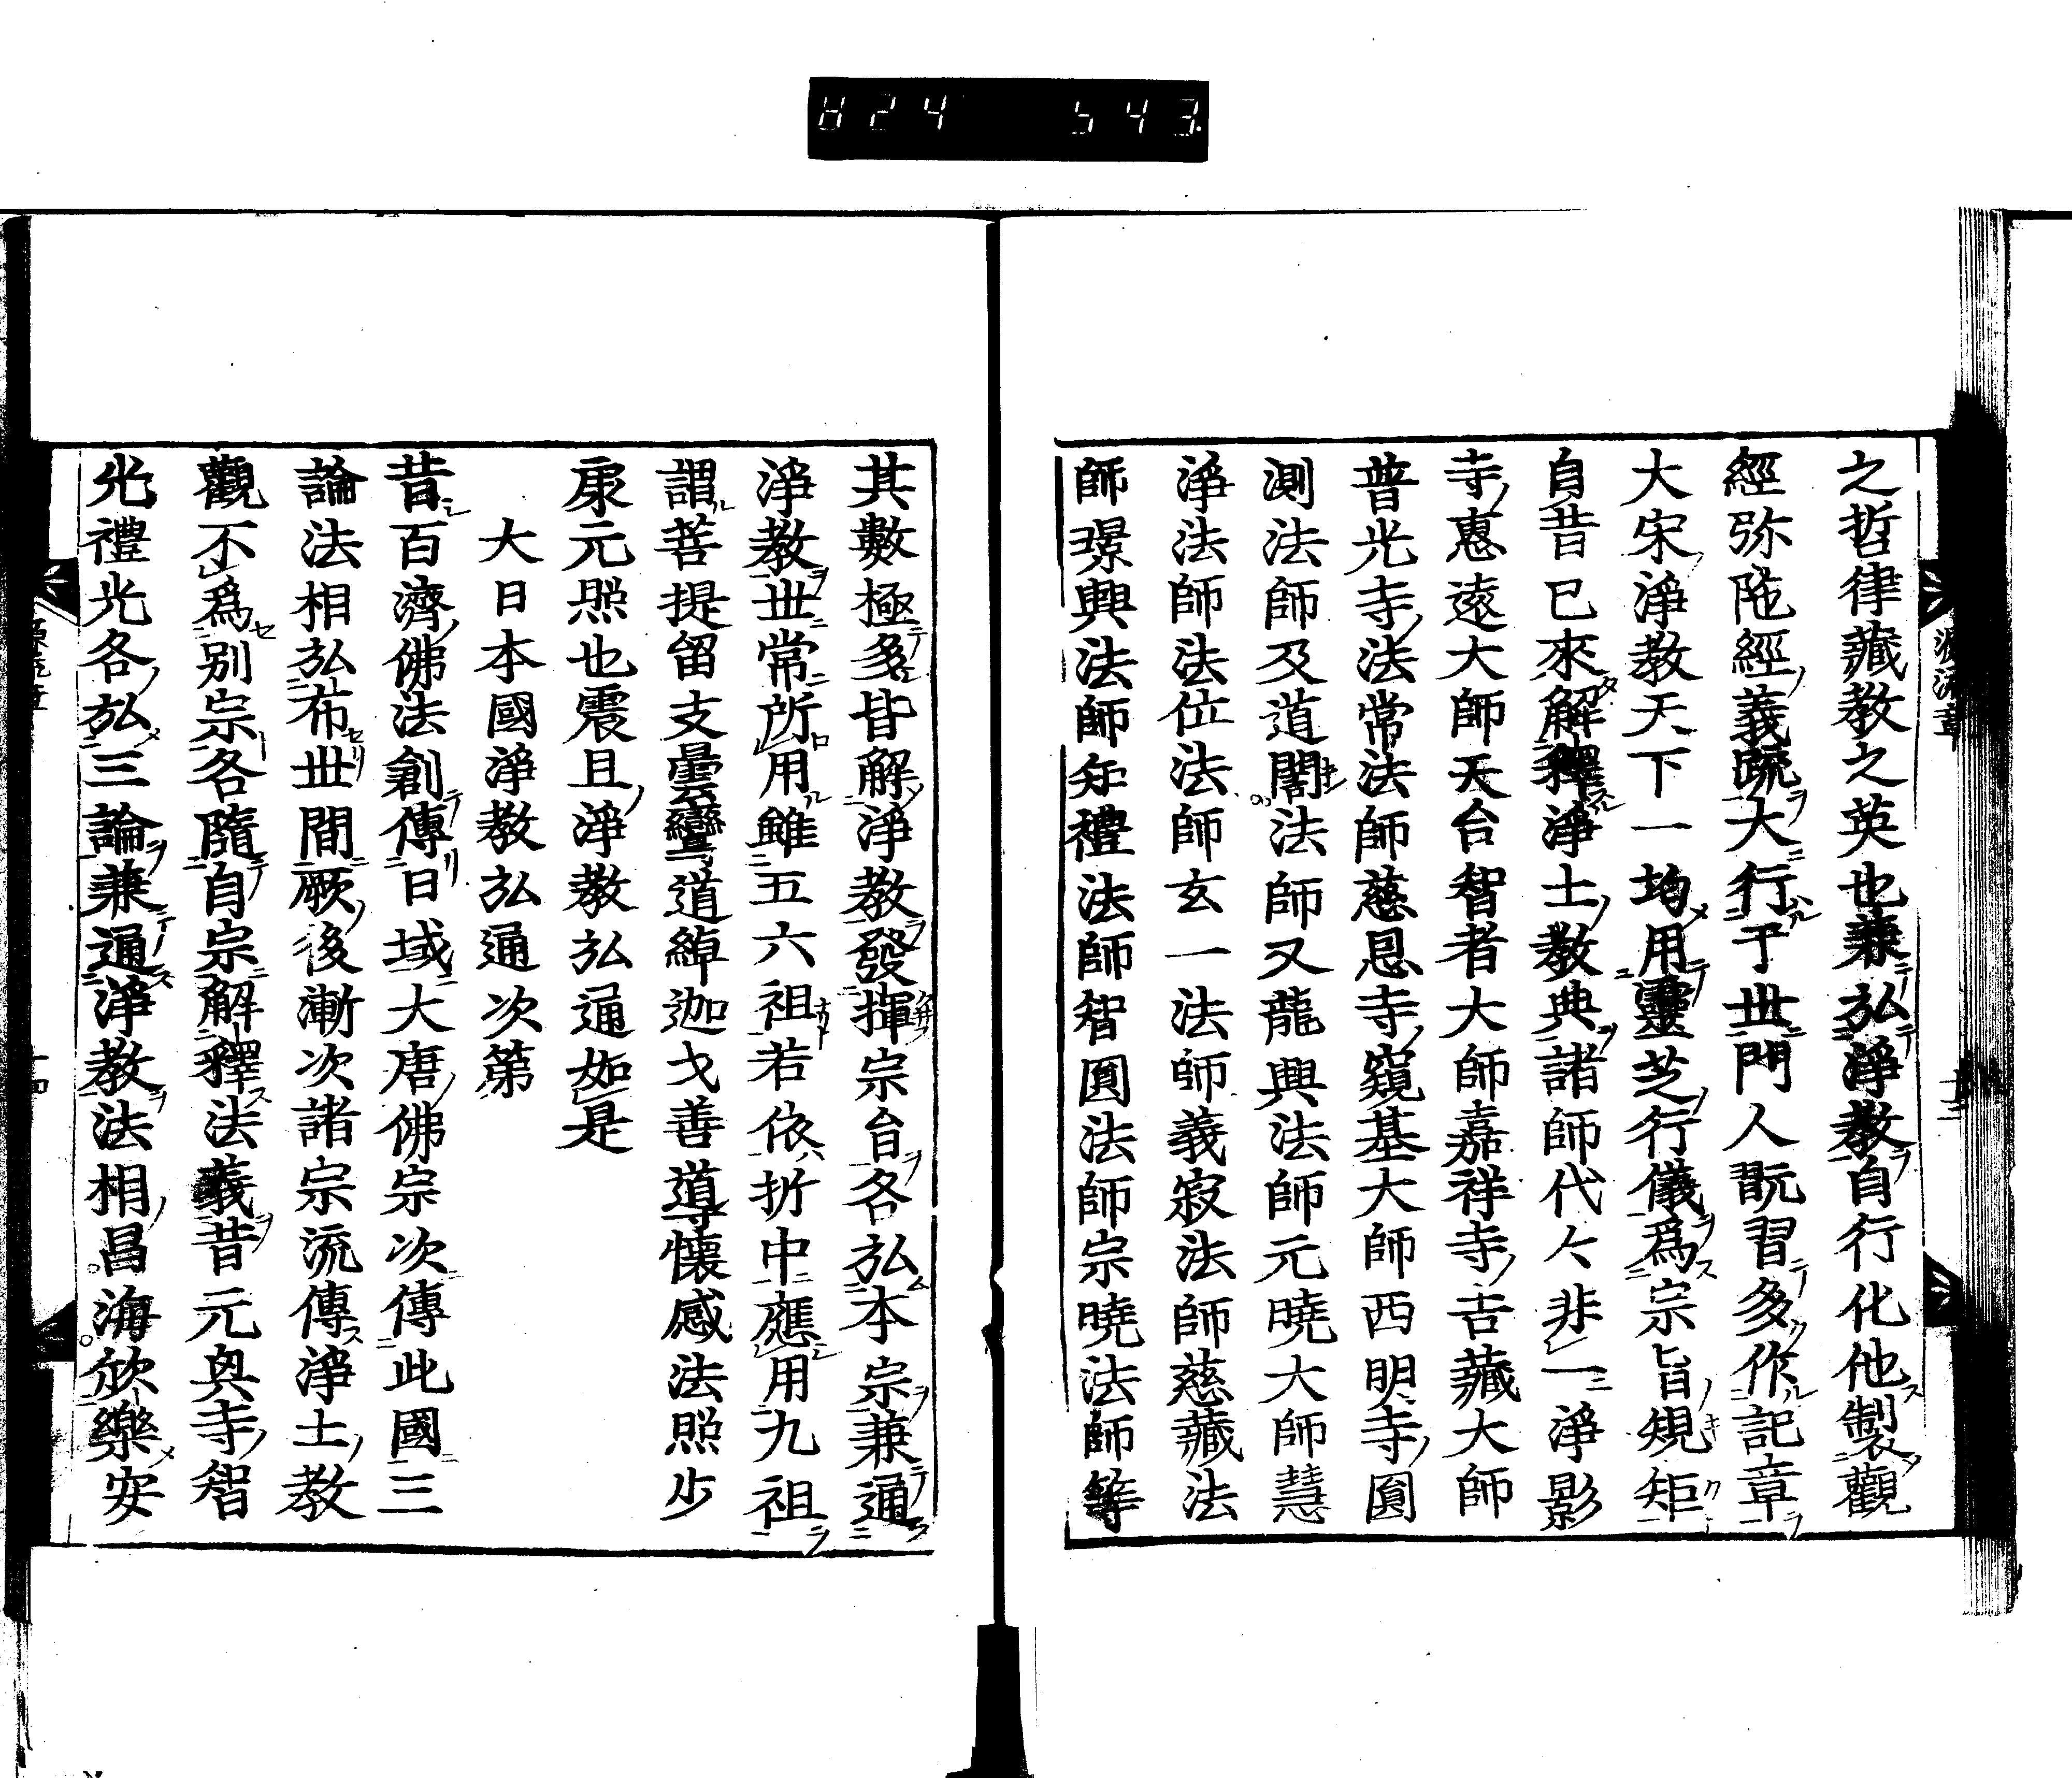 824 543
之哲律藏教之英也兼弘淨教自行化他製觀
經弥陀經義疏大行于世門人翫習多作記章
大宋淨教天下一均用靈芝行儀爲宗旨規矩
自昔已來解釋淨土教典諸師代々非一淨影
寺惠遠大師天台智者大師嘉祥寺吉藏大師
普光寺法常法師慈恩寺窺基大師西明寺圓
測法師及道誾法師又龍興法師元曉大師慧
淨法師法位法師玄一法師義寂法師慈藏法
師璟興法師知禮法師智圓法師宗曉法師等
其數極多皆解淨教發揮宗旨各弘本宗兼通
淨教世常所用雖五六祖若依折中應用九祖
謂菩提留支曇鸞道綽迦才善導懷感法照少
康元照也震旦淨教弘通如是
大日本國淨教弘通次第
昔百濟佛法創傳日域大唐佛宗次傳此國三
論法相弘布世間厥後漸次諸宗流傳淨土教
觀不爲別宗各隨自宗解釋法義昔元興寺智
光禮光各弘三論兼通淨教法相昌海欣樂安